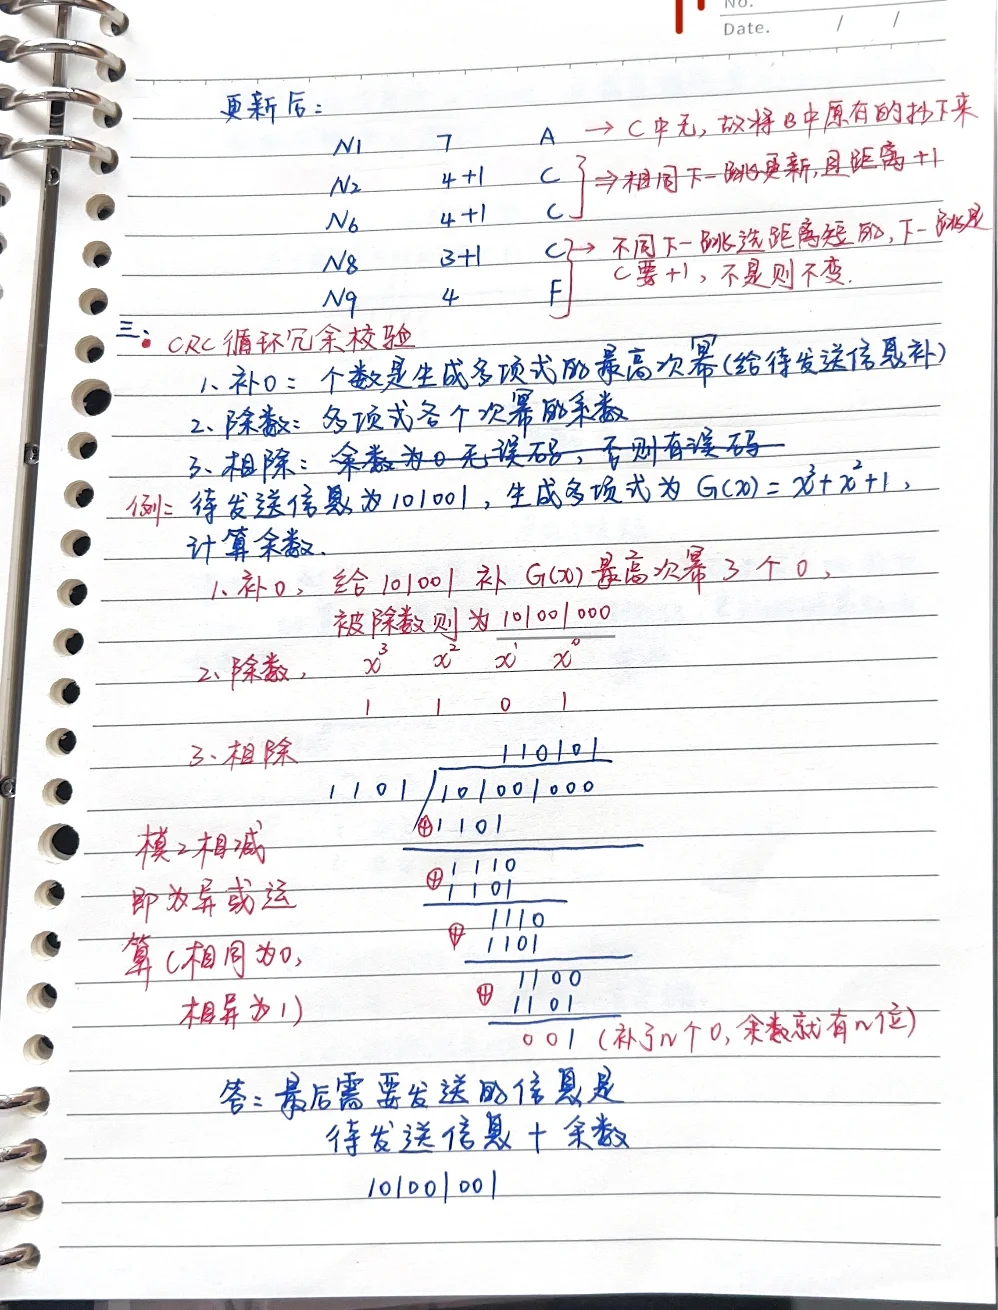 No.
Date. / /
更新后:
N1 7 A → C中无,故将B中原有的抄下来
N2 4+1 C ⇒相同下一跳更新,且距离+1
N6 4+1 C
N8 3+1 C → 不同下一跳选距离短的,下一跳是
C要+1,不是则不变.
N9 4 F
三: CRC循环冗余校验
1、补0: 个数是生成多项式的最高次幂(给待发送信息补)
2、除数: 多项式各个次幂的系数
3、相除: 余数为0无误码,否则有误码
例: 待发送信息为101001,生成多项式为G(x)=x³+x²+1,
计算余数.
1、补0, 给101001补G(x)最高次幂3个0,
被除数则为101001000
2、除数, x³ x² x¹ x⁰
1 1 0 1
3、相除 110101
1101 101001000
⊕1101
模2相减 1110
即为异或运 ⊕1101
1110
算(相同为0, ⊕1101
1100
相异为1) ⊕1101
001 (补了n个0,余数就有n位)
答: 最后需要发送的信息是
待发送信息+余数
101001001